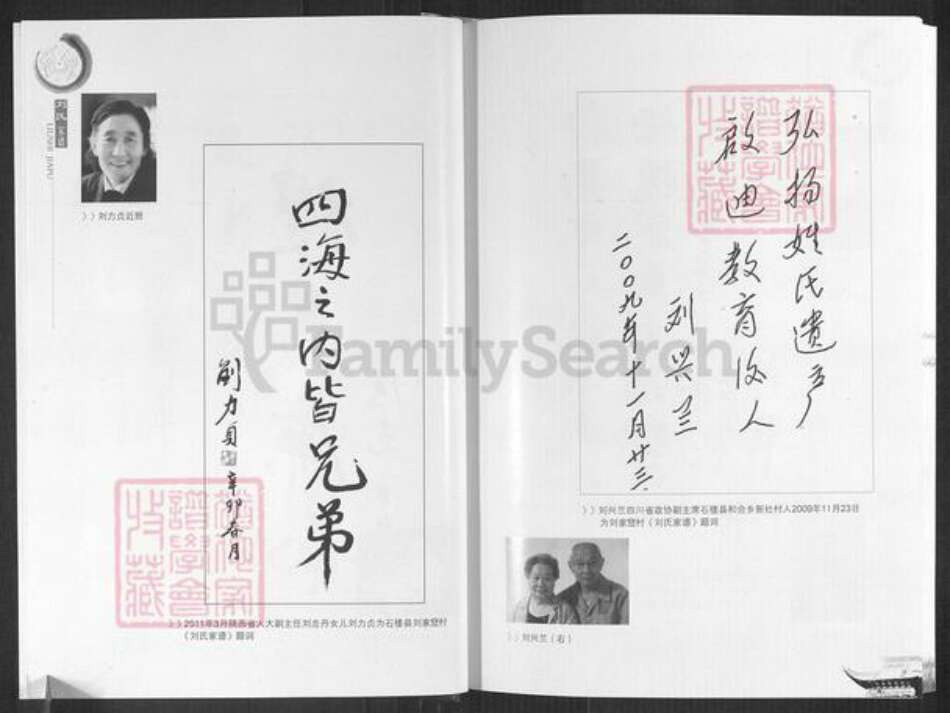 刘氏家谱
LIUSHI JIAPU
〉〉刘力贞近照
四海之内皆兄弟
刘力贞
辛卯春月
〉〉2011年3月陕西省人大副主任刘志丹女儿刘力贞为石楼县刘家窊村
《刘氏家谱》题词
弘扬姓氏遗产
啟迪教育后人
刘兴兰
二〇〇九年十一月廿三
〉〉刘兴兰四川省政协副主席石楼县和合乡新社村人2009年11月23日
为刘家窊村《刘氏家谱》题词
〉〉刘兴兰（右）
FamilySearch